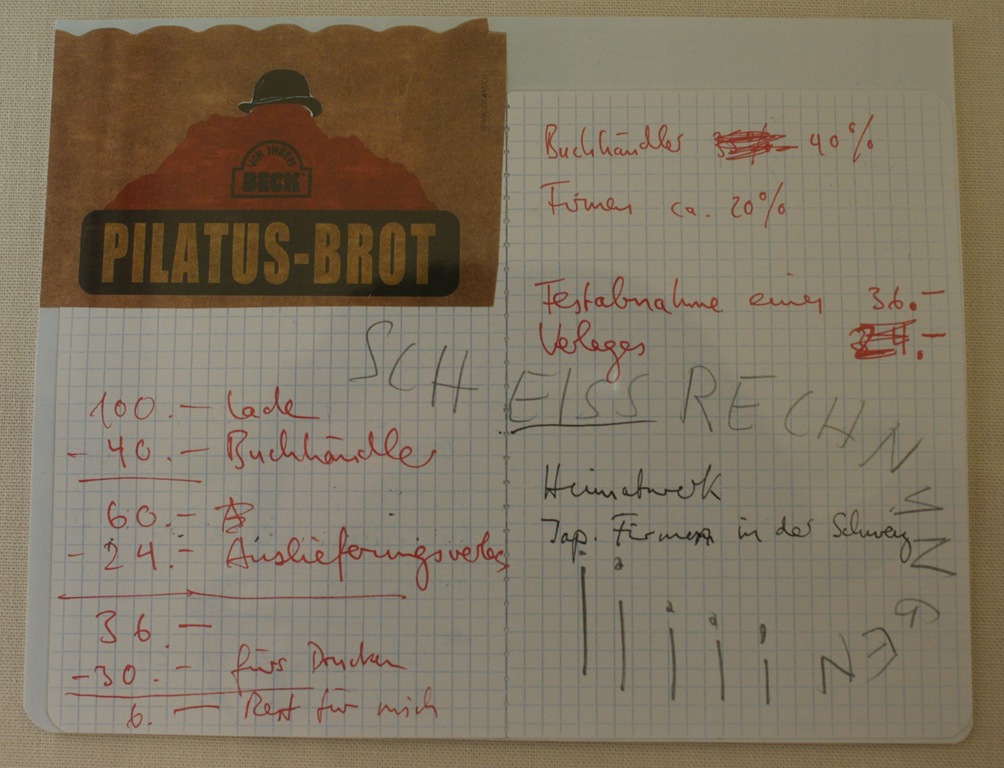 VON IHREM
BECK
PILATUS-BROT
100.— Lade
- 40.— Buchhändler
60.—
- 24.— Auslieferungsverlag
36.—
- 30.— fürs Drucken
6.— Rest für mich
Buchhändler 40%
Firmen ca. 20%
Festabnahme eines 36.–
Verlages 24.–
SCHEISSRECHNUNGEN
Heimatwerk
Jap. Firmen in der Schweiz
!iiii